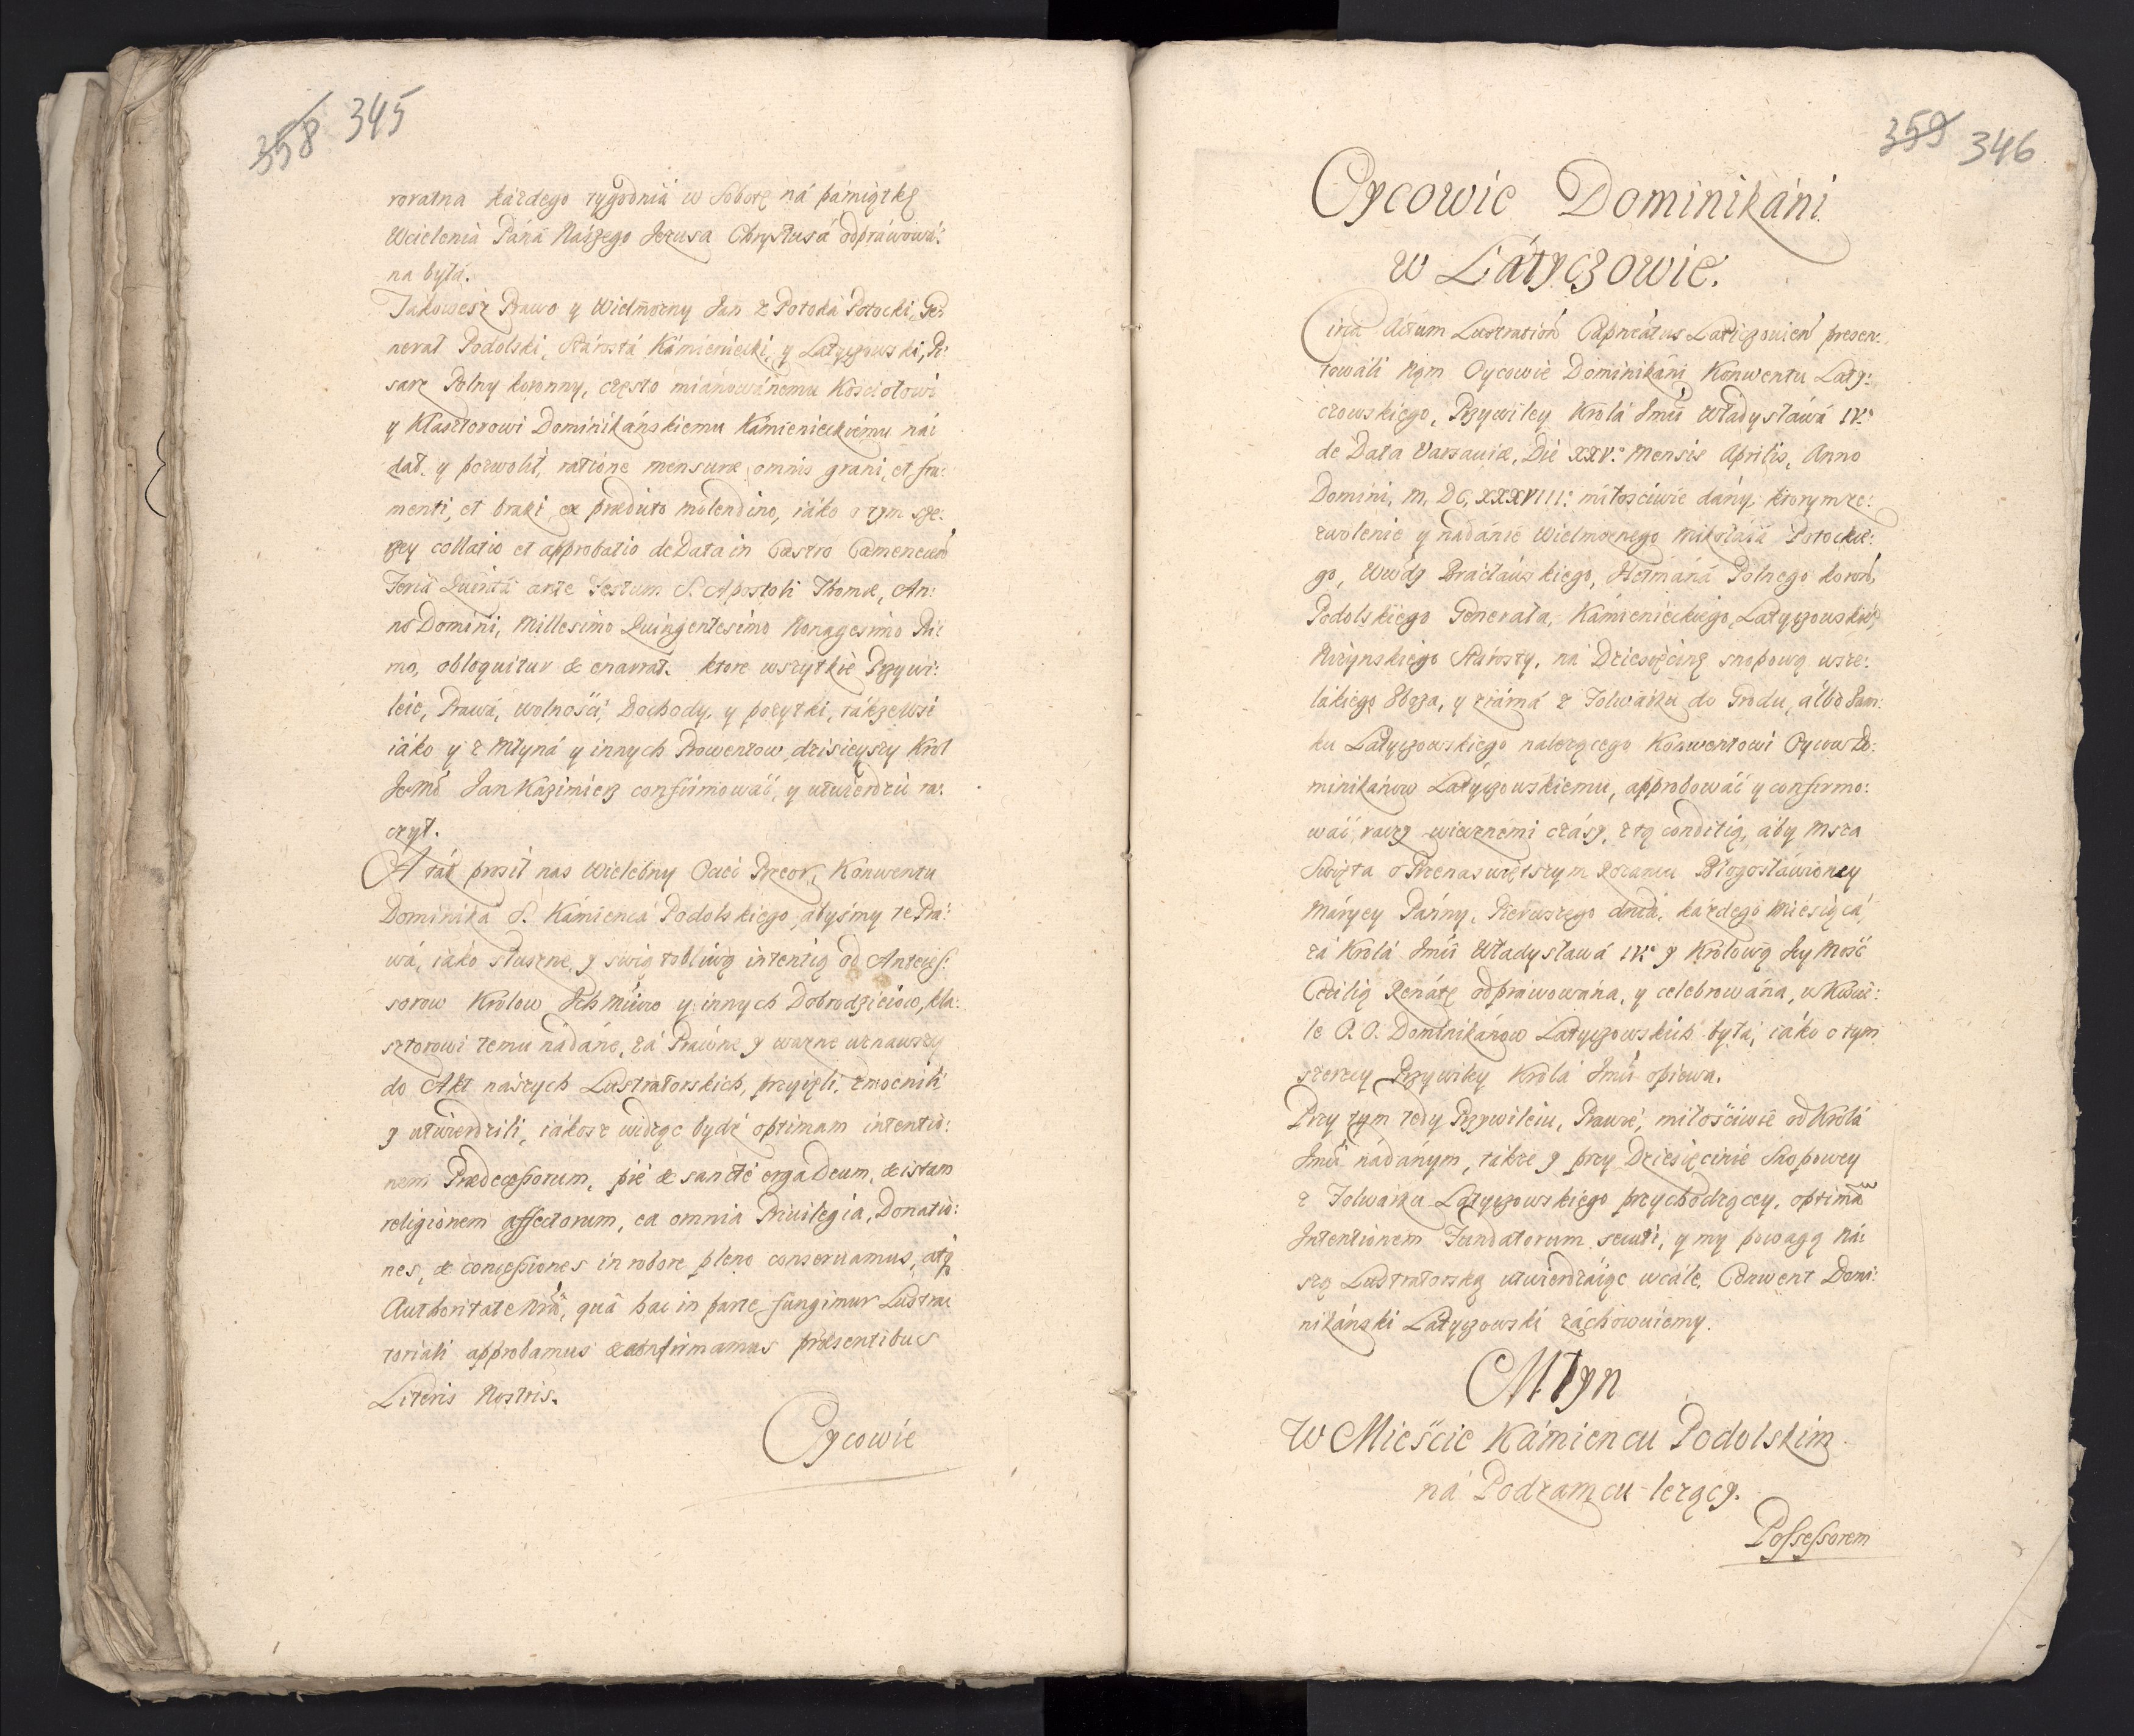 358 345
roratna każdego tygodniá w Sobotę ná pámiątkę
Wcielenia Páná Nászego Jezusa Chrystusá odpráwowá:
na byłá.
Jakowesz Prawo y Wielmożny Jan z Potoká Potocki, Ge:
nerał Podolski, Stárostá Kámieniecki, y Latyczowski, Pi:
sarz Polny koronny, często miánowánemu Kościołowi
y Klasztorowi Dominikánskiemu Kámienieckiemu ná:
dał y pozwolił, ratione mensuræ omnis grani, et fru:
menti, et braxi ex prædicto molendino, iáko o tym sze:
rzey collatio et approbatio de Data in Castro Camenecen
Feria Quinta ante Festum S. Apostoli Thomæ, An:
no Domini, Millesimo Quingentesimo Nonagesimo Pri
mo, obloquitur & enarrat. ktore wszytkie Przywi:
leie, Prawá, wolności, Dochody, y pożytki, tákze Wsi
iáko y z Młyná y innych Prowentow dzisieyszy Krol
JeMć Jan Kázimierz confirmowáć, y utwierdzić rá:
czył.
A ták prosił nas Wielebny Ociec Przeor, Konwentu
Dominiká S. Kámiencá Podolskiego, ábyśmy te Prá:
wá, iáko słuszne, y świątobliwą intentią od Anteces:
sorow Krolow Ich Mciow y innych Dobrodzieiow, kla:
sztorowi temu nádáne, zá Práwne y ważne uznawszy
do Akt nászych Lustratorskich, przyięli, zmocnili
y utwierdzili, iákosz widząc bydź optimam intentio:
nem Prædecessorum, pié & sancté erga Deum, & istam
religionem affectorum, ea omnia Priuilegia, Donatio:
nes, & concessiones in robore pleno conseruamus, atq
Authoritate Nrâ, quâ hac in parte fungimur Lustra:
toriali approbamus & confirmamus præsentibus
Literis Nostris.
Oycowie
359 346
Oycowie Dominikáni
w Látyczowie.
Circa Actum Lustration Capneátus Laticzouien presen:
towáli Nąm Oycowie Dominikáni Konwentu Laty:
czowskiego, Przywiley Krolá Jmći Władysłáwá IV.
de Data Varsauiæ, Die XXV. Mensis Aprilis, Anno
Domini, M. DC. XXXVIII: miłościwie dány, ktorym ze:
zwolenie y nádánie Wielmożnego Mikołáiá Potockie:
go, Wwdy Bracłáwskiego, Hetmáná Polnego koron,
Podolskiego Generała, Kámienieckiego, Latyczowskieo,
Niżynskiego Stárosty, ná Dziesięcinę snopową wsze:
lákiego Zboża, y ziárná z Folwárku do Grodu, álbo Zam:
ku Latyczowskiego należącego Konwentowi Oycow Do:
minikánow Latyczowskiemu, approbowáć y confirmo:
wáć raczy wiecznemi czásy, z tą conditią, áby Msza
Swięta o Przenaswiętszym Rożancu Błogosłáwioney
Máryey Pánny, Pierwszego dniá, káżdego Miesiącá,
zá Krolá Jmći Władysławá IV. y Krolową Jey Mość
Cecilią Renátę odpráwowána, y celebrowána, w Koście:
le O. O. Dominikánow Latyczowskich byłá, iáko o tym
szerzey Przywiley Krolá Jmći opiewa.
Przy tym tedy Przywileiu, Prawie, miłościwie od Krolá
Jmći nádánym, tákże y przy Dziesięcinie Snopowey
z Folwárku Latyczowskiego przychodzącey, optimam
Intentionem Fundatorum secuti, y my powagą ná:
szą Lustratorską utwierdzáiąc wcále, Conwent Domi:
nikánski Latyczowski záchowuiemy.
Młyn
W Mieście Kámiencu Podolskim
ná Podzamcu leżący.
Possessorem